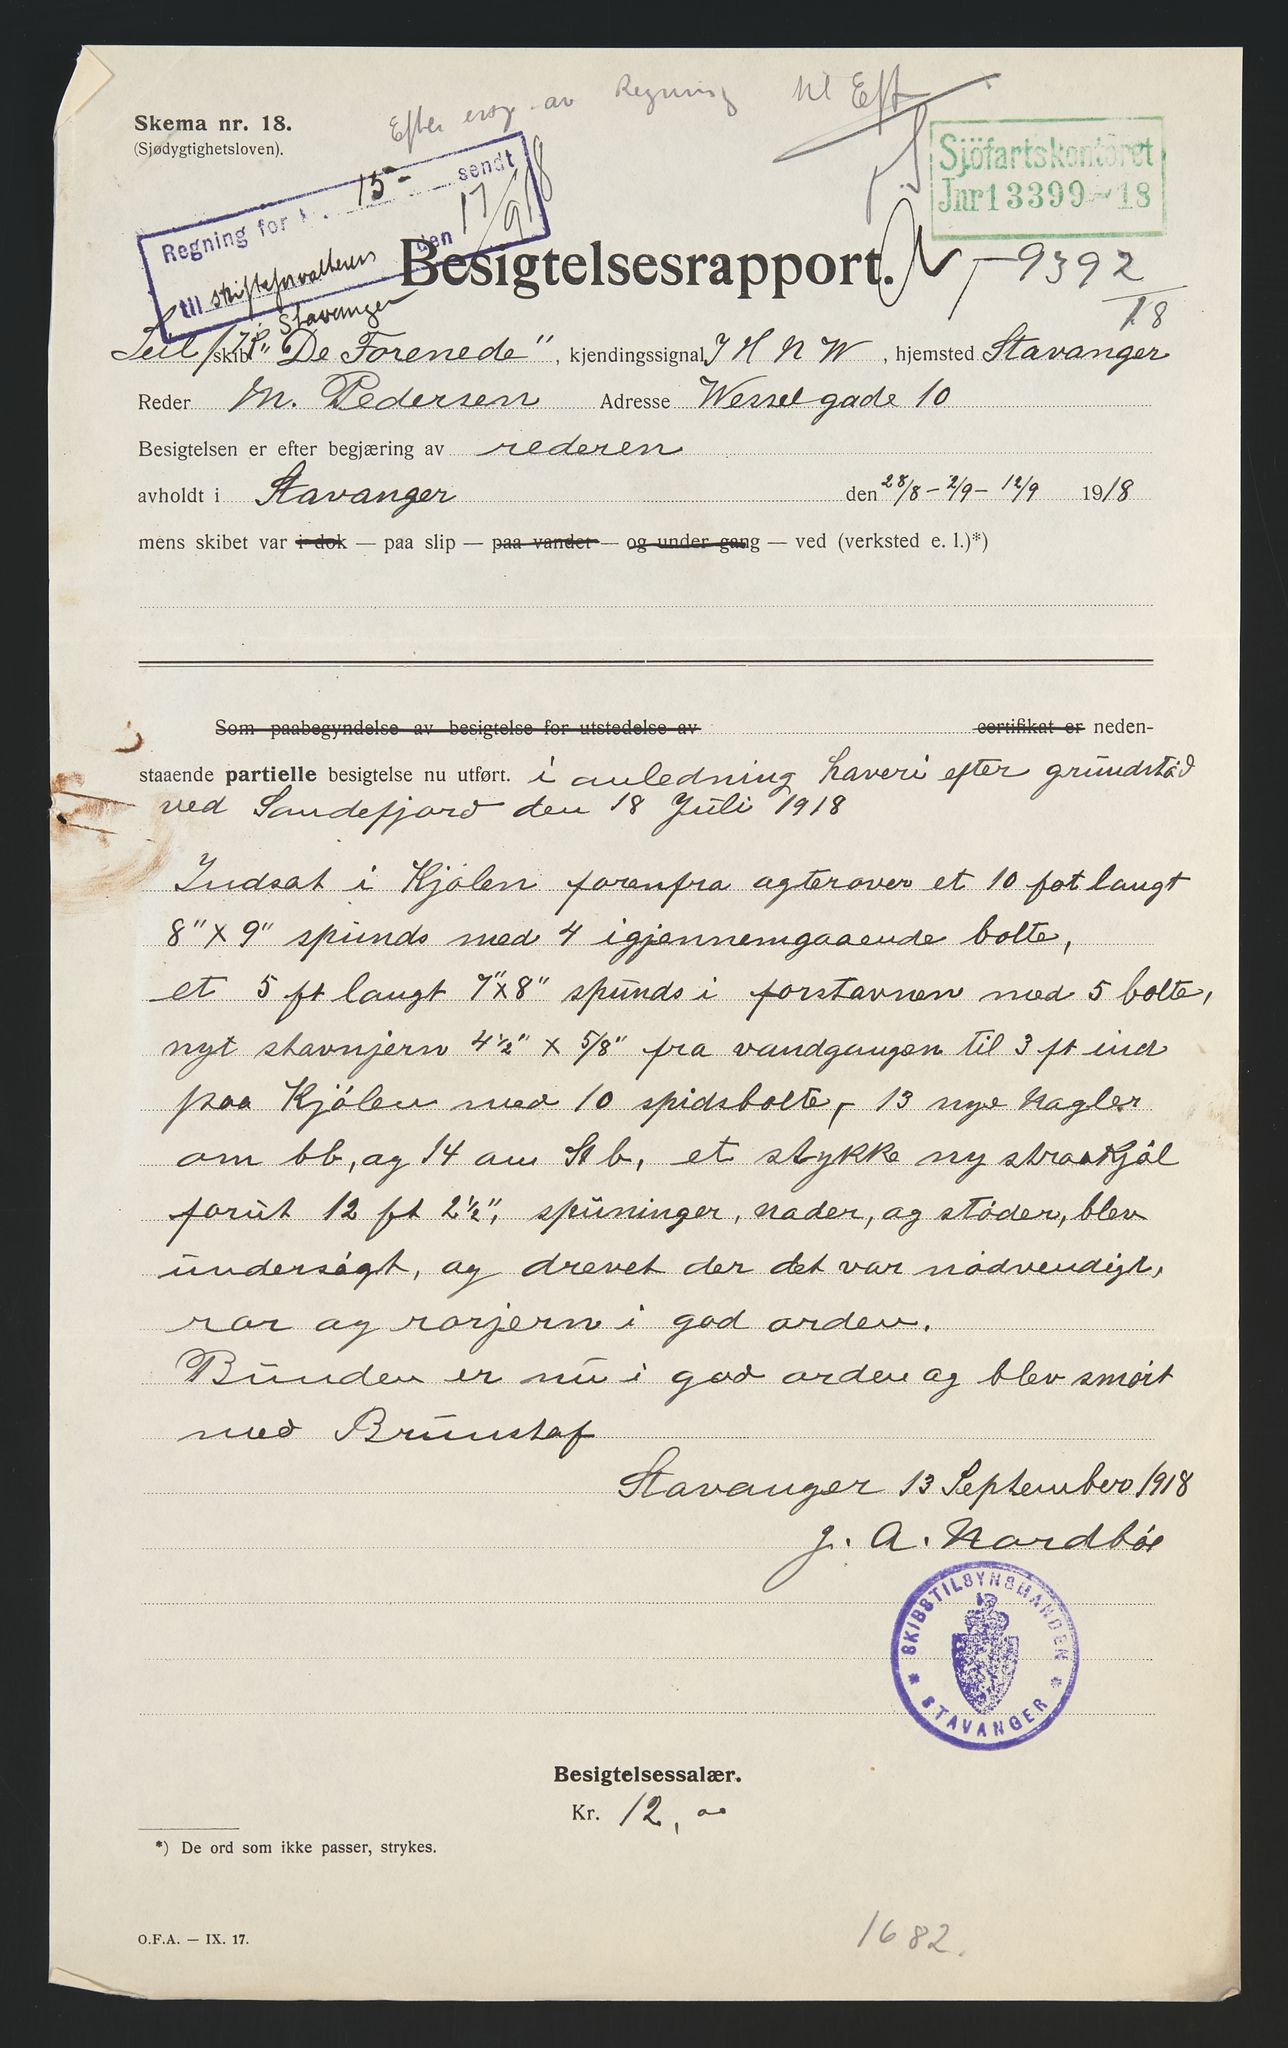 Skema nr. 18.
(Sjødygtighetsloven).
Efter av Regning til Eft
Sjöfartskontoret
Jnr 13399-18
Regning for k. 15- sendt
til skifteforvalteren den 17/9 18
Stavanger
Besigtelsesrapport.
9392
18
Seil/skib "De Forenede", kjendingssignal J H N W, hjemsted Stavanger
Reder M. Pedersen Adresse Wessel gade 10
Besigtelsen er efter begjæring av rederen
avholdt i Stavanger den 28/8 - 2/9 - 12/9 1918
mens skibet var i dok — paa slip — paa vandet — og under gang — ved (verksted e. l.)*)
Som paabegyndelse av besigtelse for utstedelse av certifikat er neden-
staaende partielle besigtelse nu utført. i anledning haveri efter grundstöd
ved Sandefjord den 18 Juli 1918
Indsat i Kjölen forenfra agterover et 10 fot langt
8" x 9" spunds med 4 igjennemgaaende bolte,
et 5 ft langt 7" x 8" spunds i forstavnen med 5 bolte,
nyt stavnjern 4 1/2" x 5/8" fra vandgangen til 3 ft ind
paa Kjölen med 10 spidsbolte, 13 nye nagler
om bb, og 14 om Stb, et stykke ny straakjöl
forut 12 ft 2 1/2", spuninger, nader, og stöder, blev
undersögt, og drevet der det var nödvendigt,
ror og rorjern i god orden.
Bunden er nu i god orden og blev smört
med Brunstof
Stavanger 13 September 1918
J. A. Nordböe
SKIBSTILSYNSMANDEN
* STAVANGER *
Besigtelsessalær.
Kr. 12,00
*) De ord som ikke passer, strykes.
O.F.A. — IX. 17.
1682.